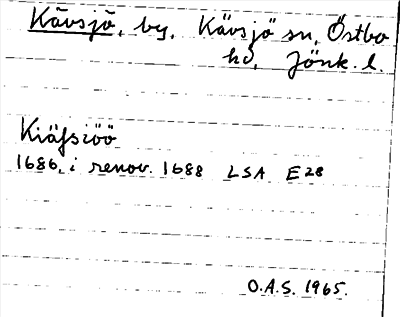 Kävsjö, by, Kävsjö sn, Östbo
hd, Jönk. l.
Kiäfsiöö
1686, i renov. 1688 LSA E28
O.A.S. 1965.